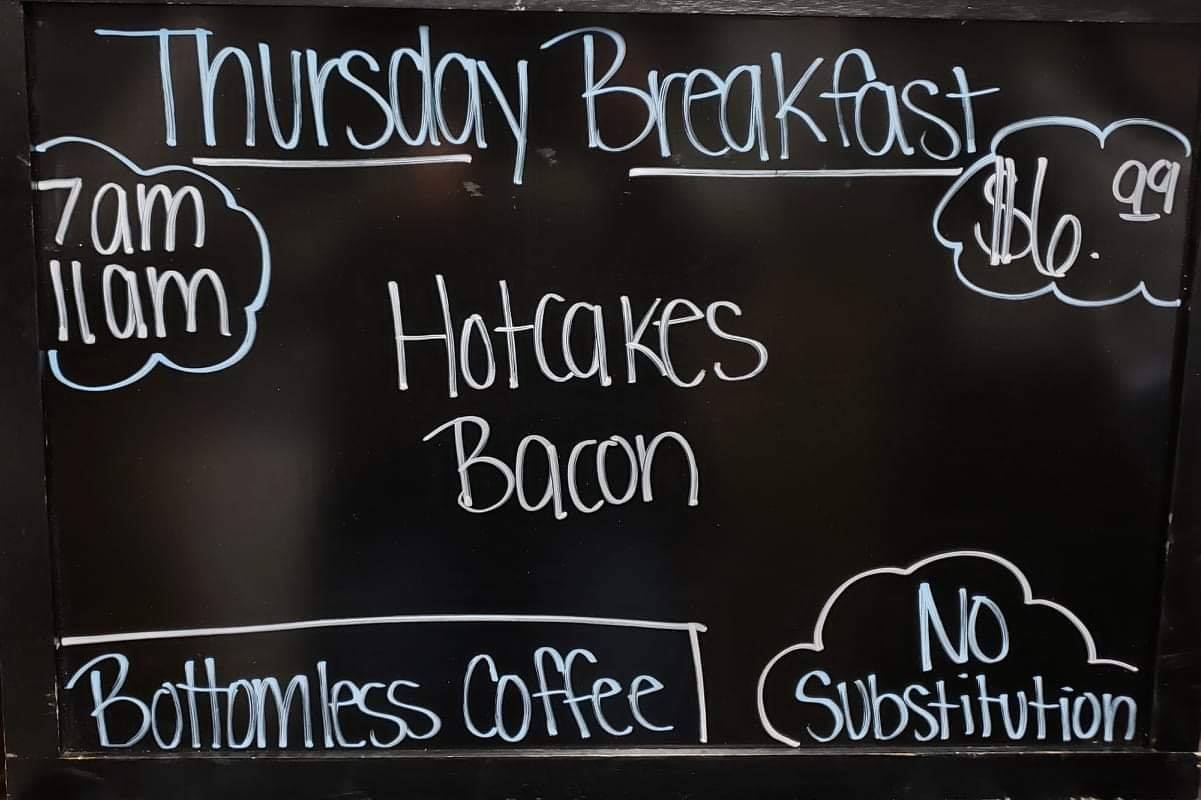 Thursday Breakfast
7am
11am
$6.99
Hotcakes
Bacon
Bottomless Coffee
No
Substitution